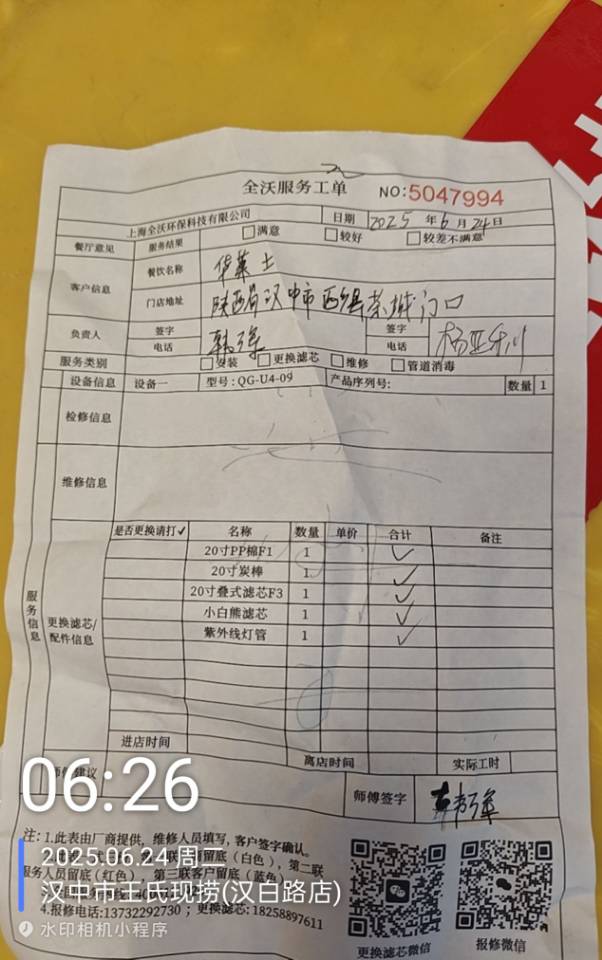 全沃服务工单 NO:5047994
上海全沃环保科技有限公司 日期 2025 年 6 月 24 日
餐厅意见 服务结果 满意 较好 较差不满意
客户信息 餐饮名称 华莱士
门店地址 陕西省汉中市西乡县莱城门口
负责人 签字 签字
电话 韩强 电话
服务类别 安装 更换滤芯 维修 管道消毒
设备信息 设备一 型号:QG-U4-09 产品序列号: 数量 1
检修信息
维修信息
服务信息
更换滤芯/配件信息
是否更换请打✓ 名称 数量 单价 合计 备注
20寸PP棉F1 1 ✓
20寸炭棒 1 ✓
20寸叠式滤芯F3 1 ✓
小白熊滤芯 1 ✓
紫外线灯管 1 ✓
进店时间 离店时间 实际工时
师傅建议 师傅签字
06:26
注:1.此表由厂商提供，维修人员填写，客户签字确认。
留底(白色)，第二联
服务人员留底(红色)，第三联客户留底(蓝色)
2025.06.24 周二
汉中市王氏现捞(汉白路店)
4.报修电话:13732292730 ; 更换滤芯:18258897611
水印相机小程序
更换滤芯微信 报修微信